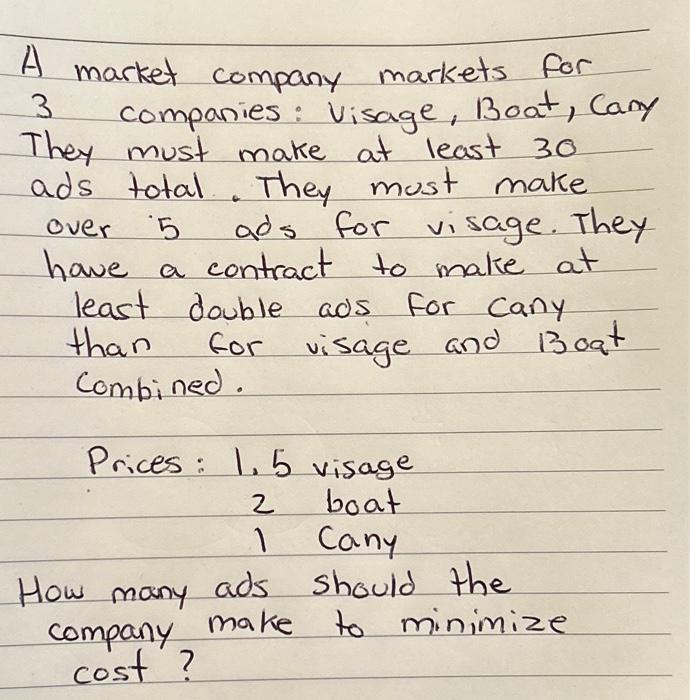 A market company markets for
3 companies: Visage, Boat, Cany
They must make at least 30
ads total. They must make
over 5 ads for visage. They
have a contract to make at
least double ads for Cany
than for visage and Boat
Combined.
Prices: 1.5 visage
2 boat
1 Cany
How many ads should the
company make to minimize
cost?